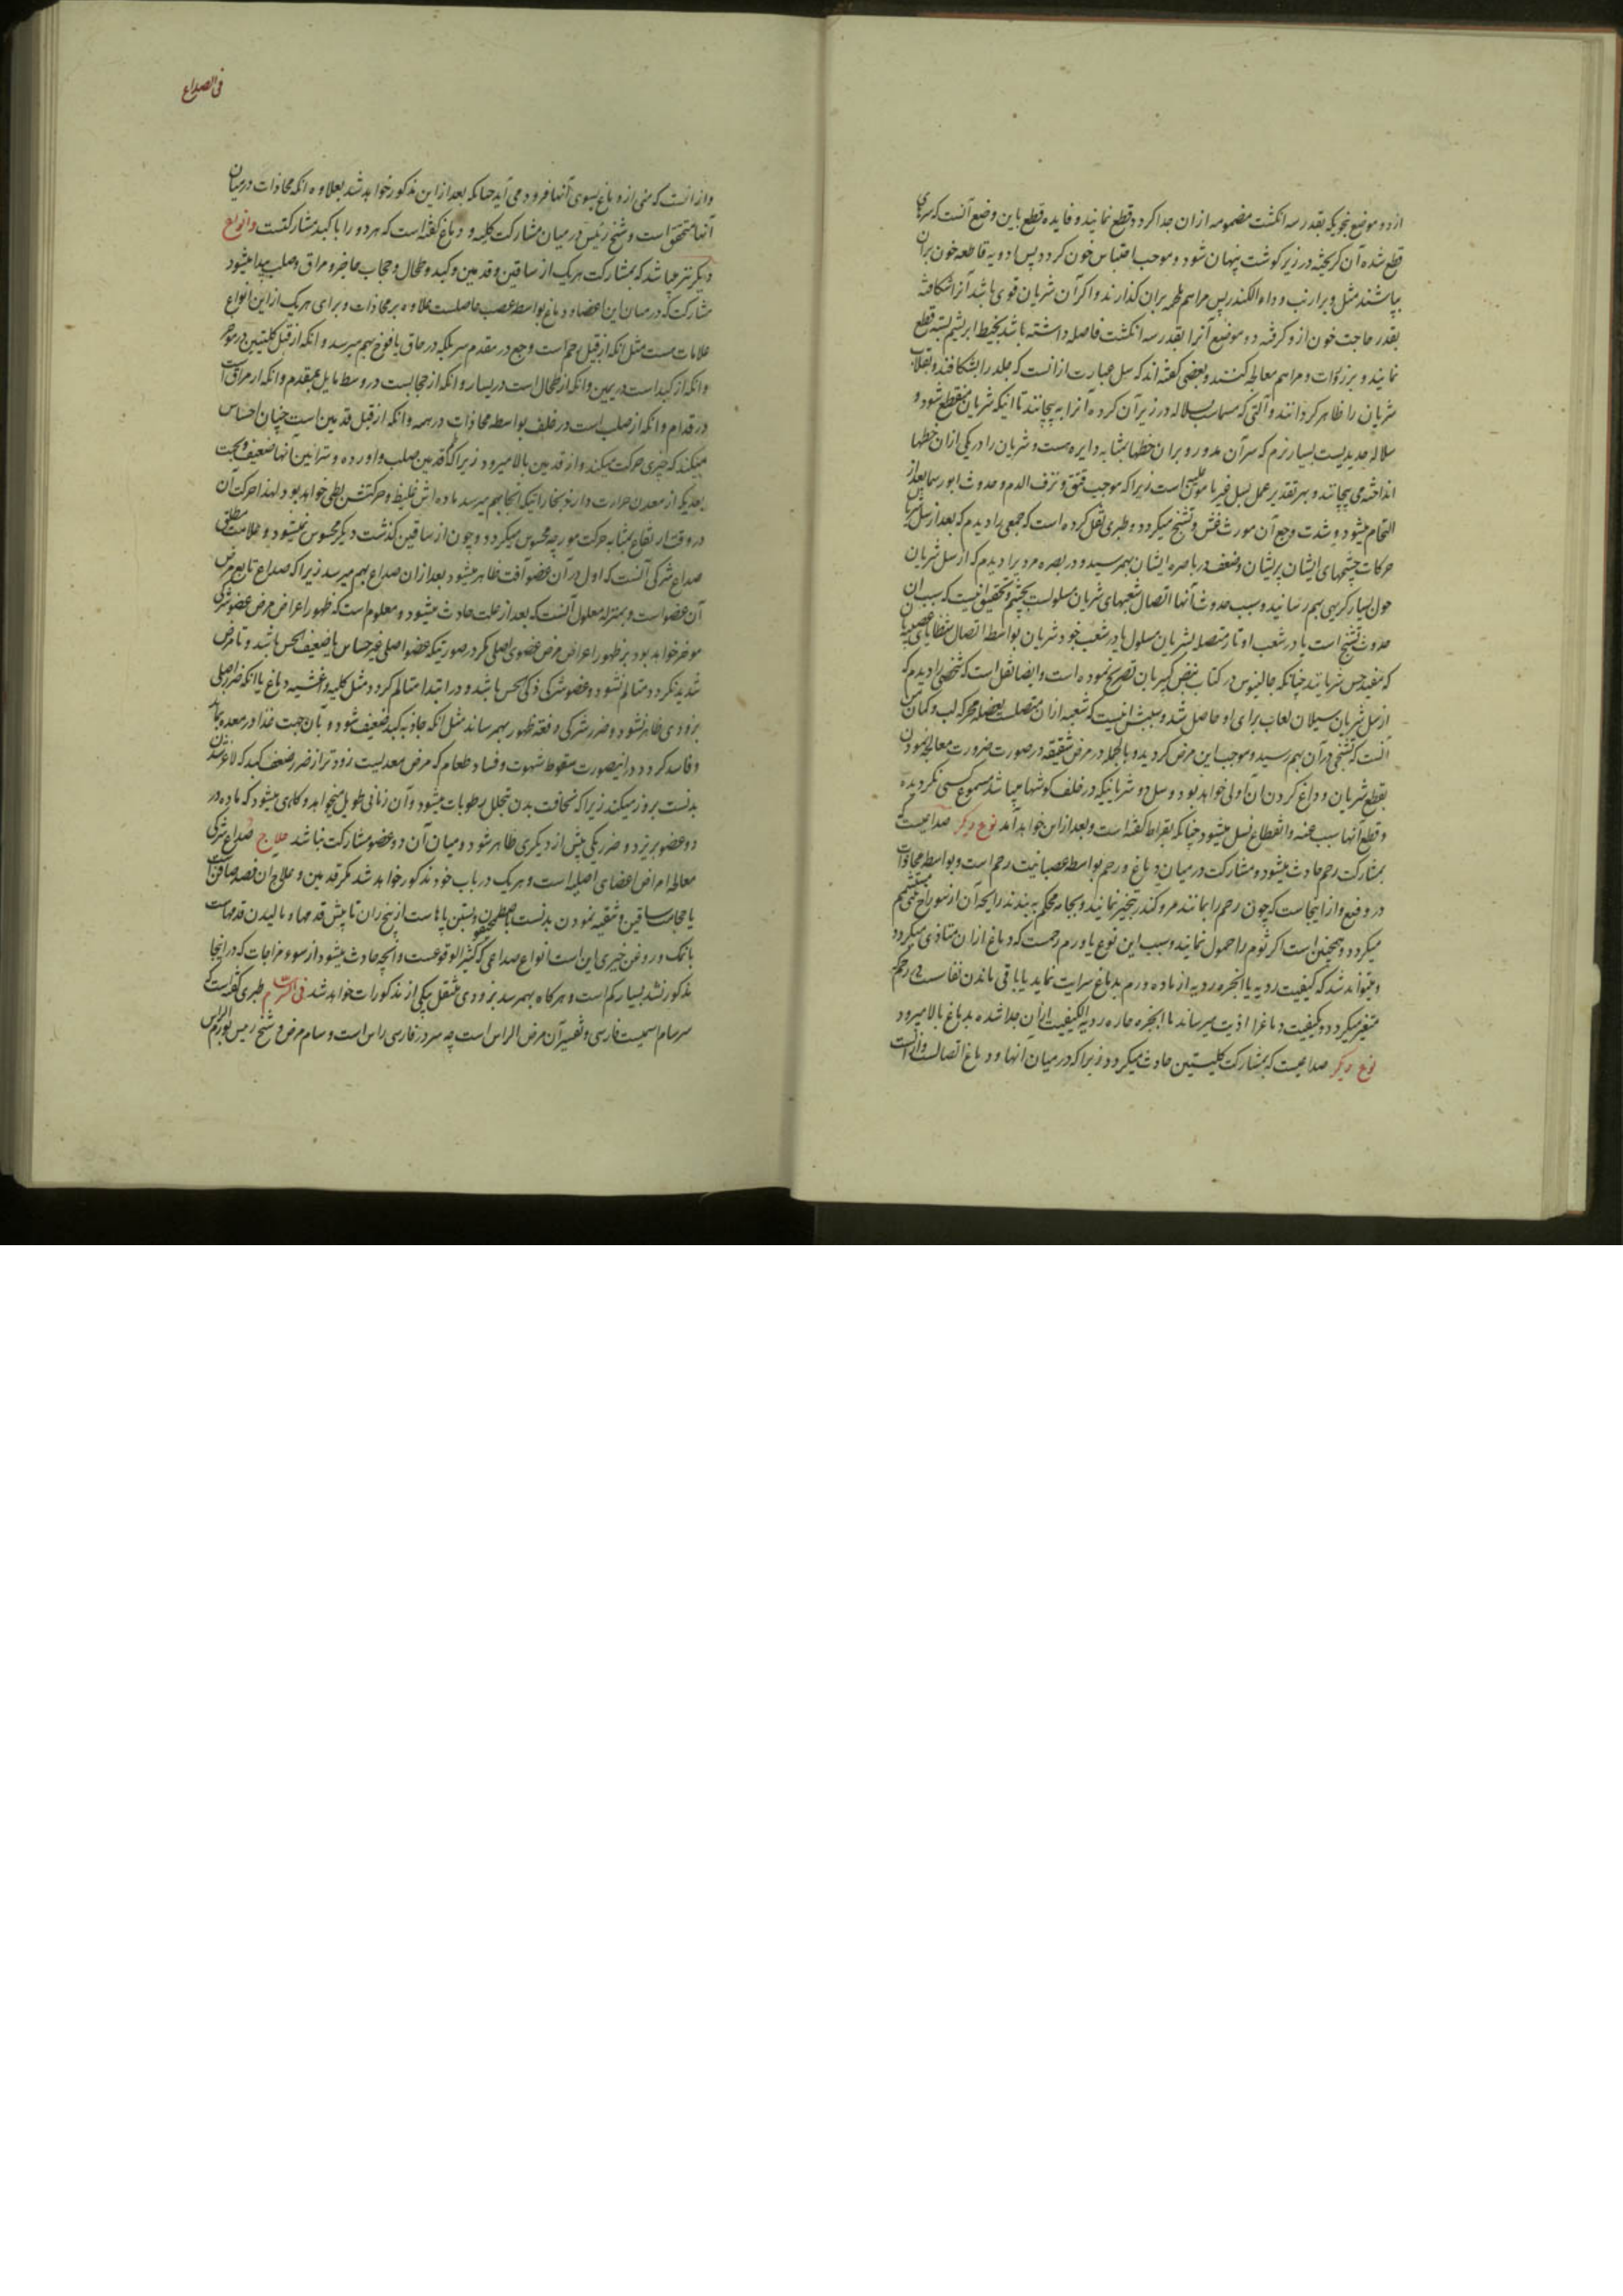 از دو موضع بنحویکه بقدر سه انکشت مضمومه ازان جدا کردد قطع نمایند و فایده قطع باین وضع آنست که سرهای
قطع شده آن کریخته در زیر کوشت پنهان شود و موجب احتباس خون کردد پس ادویه قاطعه خون بران
بپاشند مثل وبر ارنب و دواء الکندر پس مراهم ملحمه بران کذارند و اکر آن شریان قوی باشد آنرا شکافته
بقدر حاجت خون ازو کرفته دو موضع آنرا بقدر سه انکشت فاصله داشته باشد بخیط ابریشم بسته قطع
نمایند و بزرورات و مراهم معالجه کنند و بعضی کفته اند که سل عبارت ازانست که جلد را بشکافند و بقلاب
شریان را ظاهر کردانند و آلتی که مسماست بسلاله در زیر آن کرده آنرا به پیچانند تا اینکه شریان منقطع شود و
سلاله حدیدیست بسیار نرم که سر آن مدور و بران خطها بمثابه دایره هست و شریان را در یکی ازان خطها
انداخته می پیچانند و بهر تقدیر عمل سل غیر مامون است زیرا که موجب فتق و نزف الدم و حدوث ابورسما بعد از
التحام میشود و شدت وجع آن مورث غشی و تشنج میکردد و طبری نقل کرده است که جمعی را دیدم که بعد از سل شریان
حرکات چشمهای ایشان پریشان و ضعف در باصره ایشان بهمرسید و در بصره مردیرا دیدم که از سل شریان
حول بسیار کریهی بهم رسانید و سبب حدوث آنها اتصال شعبهای شریان مسلولست بچشم و تحقیق انیست که سبب ان
حدوث تشنج است یا در شعب اوتار متصله بشریان مسلول یا در شعب خود شریان بواسطه اتصال شظایای عصبیه بان
که مفید حس شریانند چنانکه جالینوس در کتاب نبض کبیر بان تصریح نموده است و ایضا نقل است که شخصی را دیدم که
از سل شریان سیلان لعاب برای او حاصل شد و سببش انیست که شعبه ازان متصلست بعضله محرکه لب و کمان من
آنست که تشنجی در آن بهم رسید و موجب این مرض کردید و بالجمله در مرض شقیقه در صورت ضرورت معالجه نمودن
بقطع شریان و داغ کردن ان اولی خواهد بود و سل دو شریانیکه در خلف کوشها میباشد مسموع کسی نکردیده
و قطع آنها سبب عنه و انقطاع نسل میشود چنانکه بقراط کفته است و بعد ازاین خواهد آمد نوع دیکر صداعیست که
بمشارکت رحم حادث میشود و مشارکت در میان دماغ و رحم بواسطه عصبانیت رحم است و بواسطه محاذات
در وضع و از اینجاست که چون رحم را بمانند مر و کندر تبخیر نمایند و بجامه محکم به بندند رایحه آن از سوراخ بینی مستشم
میکردد و همچنین است اکر ثوم را حمول نمایند و سبب این نوع یا ورم رحمست که دماغ ازان متاذی میکردد
و میتواند شد که کیفیت ردیه یا ابخره ردیه از ماده ورم بدماغ سرایت نماید یا باقی ماندن نفاست در رحم که
متغیر میکردد و بکیفیت دماغرا اذیت میرساند یا ابخره حاره ردیه الکیفیت ازان جدا شده بدماغ بالا میرود
نوع دیکر صداعیست که بمشارکت کلیتین حادث میکردد زیرا که در میان انها و دماغ اتصالست
فی الصداع
و از انست که منی از دماغ بسوی آنها فرود می آید چنانکه بعد ازاین مذکور خواهد شد بعلاوه انکه محاذات در میان
آنها متحقق است و شیخ رئیس در میان مشارکت کلیه و دماغ کفته است که هر دو را با کبد مشارکتست و انواع
دیکر نیز میباشد که بمشارکت هر یک از ساقین و قدمین و کبد و طحال و حجاب حاجز و مراق و صلب پیدا میشود
مشارکت که در میان این اعضا و دماغ بواسطه عصب حاصلست علاوه بر محاذات و برای هر یک ازاین انواع
علامات هست مثل انکه از قبل رحم است وجع در مقدم سر بلکه در حاق یافوخ بهم میرسد و انکه از قبل کلیتین در موخر
و انکه از کبد است در یمین و انکه از طحال است در یسار و انکه از حجابست در وسط مایل بمقدم و انکه از مراق است
در قدام و انکه از صلب است در خلف بواسطه محاذات در همه و انکه از قبل قدمین است چنان احساس
میکند که چیزی حرکت میکند و از قدمین بالا میرود زیرا که قدمین صلب و اورده و شرائین آنها ضعیف و بجهت
بعدیکه از معدن حرارت دارند بخاراتیکه انجا بهم میرسد ماده اش غلیظ و حرکتش بطی خواهد بود لهذا حرکت آن
در وقت ارتفاع بمثابه حرکت مورچه محسوس میکردد و چون از ساقین کذشت دیکر محسوس نمیشود و علامت مطلق
صداع شرکی آنست که اول در آن عضو آفت ظاهر میشود بعد ازان صداع بهم میرسد زیرا که صداع تابع مرض
آن عضو است و بمنزله معلول آنست که بعد از علت حادث میشود و معلوم است که ظهور اعراض مرض عضو شرکی
موخر خواهد بود بر ظهور اعراض مرض عضوی اصلی مکر در صورتیکه عضو اصلی غیر حساس یا ضعیف الحس باشد و تا مرض
شدید نکردد متالم نشود و عضو شرکی ذکی الحس باشد و در ابتدا متالم کردد مثل کلیه و اغشیه دماغ یا انکه ضرر اصلی
بزودی ظاهر نشود و ضرر شرکی دفعة ظهور بهمرساند مثل انکه جاذبه کبد ضعیف شود و بان جهت غذا در معده بماند
و فاسد کردد در اینصورت سقوط شهوت و فساد طعام که مرض معدیست زودتر از ضرر ضعف کبد که لاغر شدن
بدنست بروز میکند زیرا که نحافت بدن بتحلل رطوبات میشود و آن زمانی طویل میخواهد و کاهی میشود که ماده در
دو عضو بریزد و ضرر یکی پیش از دیکری ظاهر شود و میان آن دو عضو مشارکت نباشد علاج صداع شرکی
معالجه امراض اعضای اصلیه است و هر یک در باب خود مذکور خواهد شد مکر قدمین و علاج ان فصد صافن است
یا حجامت ساقین و تنقیه نمودن بدنست باصطمخیقون و بستن پاهاست از بیخ ران تا پیش قدمها و مالیدن قدمهاست
بانمک و روغن خیری این است انواع صداعی که کثیر الوقوعست و آنچه حادث میشود از سوء مزاجات که در اینجا
مذکور نشد بسیار کم است و هر کاه بهمرسد بزودی منتقل بیکی از مذکورات خواهد شد فی السرسام طبری کفته است که
سرسام اسمیست فارسی و تفسیر آن مرض الراس است چه سر در فارسی راس است و سام مرض و شیخ رئیس بورم الراس